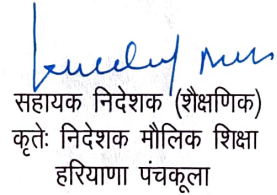 सहायक निदेशक (शैक्षणिक)
कृतेः निदेशक मौलिक शिक्षा
हरियाणा पंचकूला